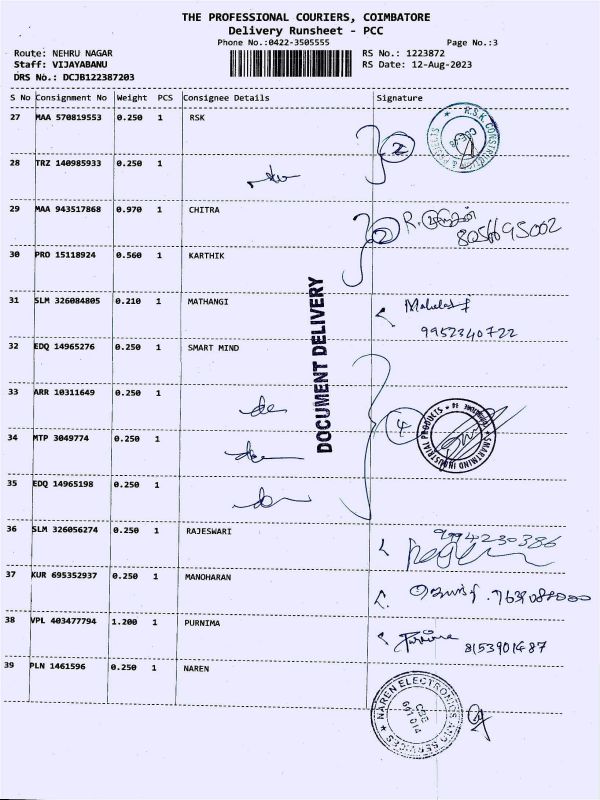 THE PROFESSIONAL COURIERS, COIMBATORE
Delivery Runsheet - PCC
Phone No.:0422-3505555 Page No.:3
Route: NEHRU NAGAR RS No.: 1223872
Staff: VIJAYABANU RS Date: 12-Aug-2023
DRS No.: DCJB122387203
S No Consignment No Weight PCS Consignee Details Signature
27 MAA 570819553 0.250 1 RSK
R.S.K CONSTRUCTI
2
28 TRZ 140985933 0.250 1
29 MAA 943517868 0.970 1 CHITRA
2 R.
8056695002
30 PRO 15118924 0.560 1 KARTHIK
31 SLM 326084805 0.210 1 MATHANGI
9952340722
DOCUMENT DELIVERY
32 EDQ 14965276 0.250 1 SMART MIND
33 ARR 10311649 0.250 1
4 SMARTMIND INDUSTRIAL PRODUCTS
34 MTP 3049774 0.250 1
35 EDQ 14965198 0.250 1
36 SLM 326056274 0.250 1 RAJESWARI
9994230386
37 KUR 695352937 0.250 1 MANOHARAN
38 VPL 403477794 1.200 1 PURNIMA
8153901487
39 PLN 1461596 0.250 1 NAREN
NAREN ELECTRONICS AND SERVICES
CBE
641 014